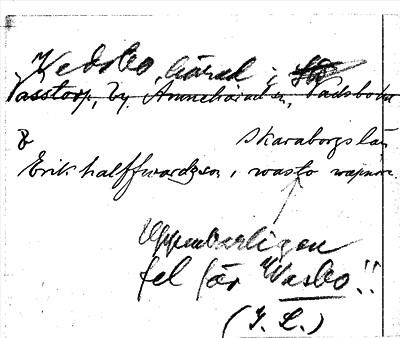 Vedsbo, härad i
Vasstorp, by, Amnehärad sn, Vadsbo hd
Skaraborgs län
Erik halffwardzson, i wasto wapnare
Uppenbarligen
fel för "Wasbo"!!
(I. L.)